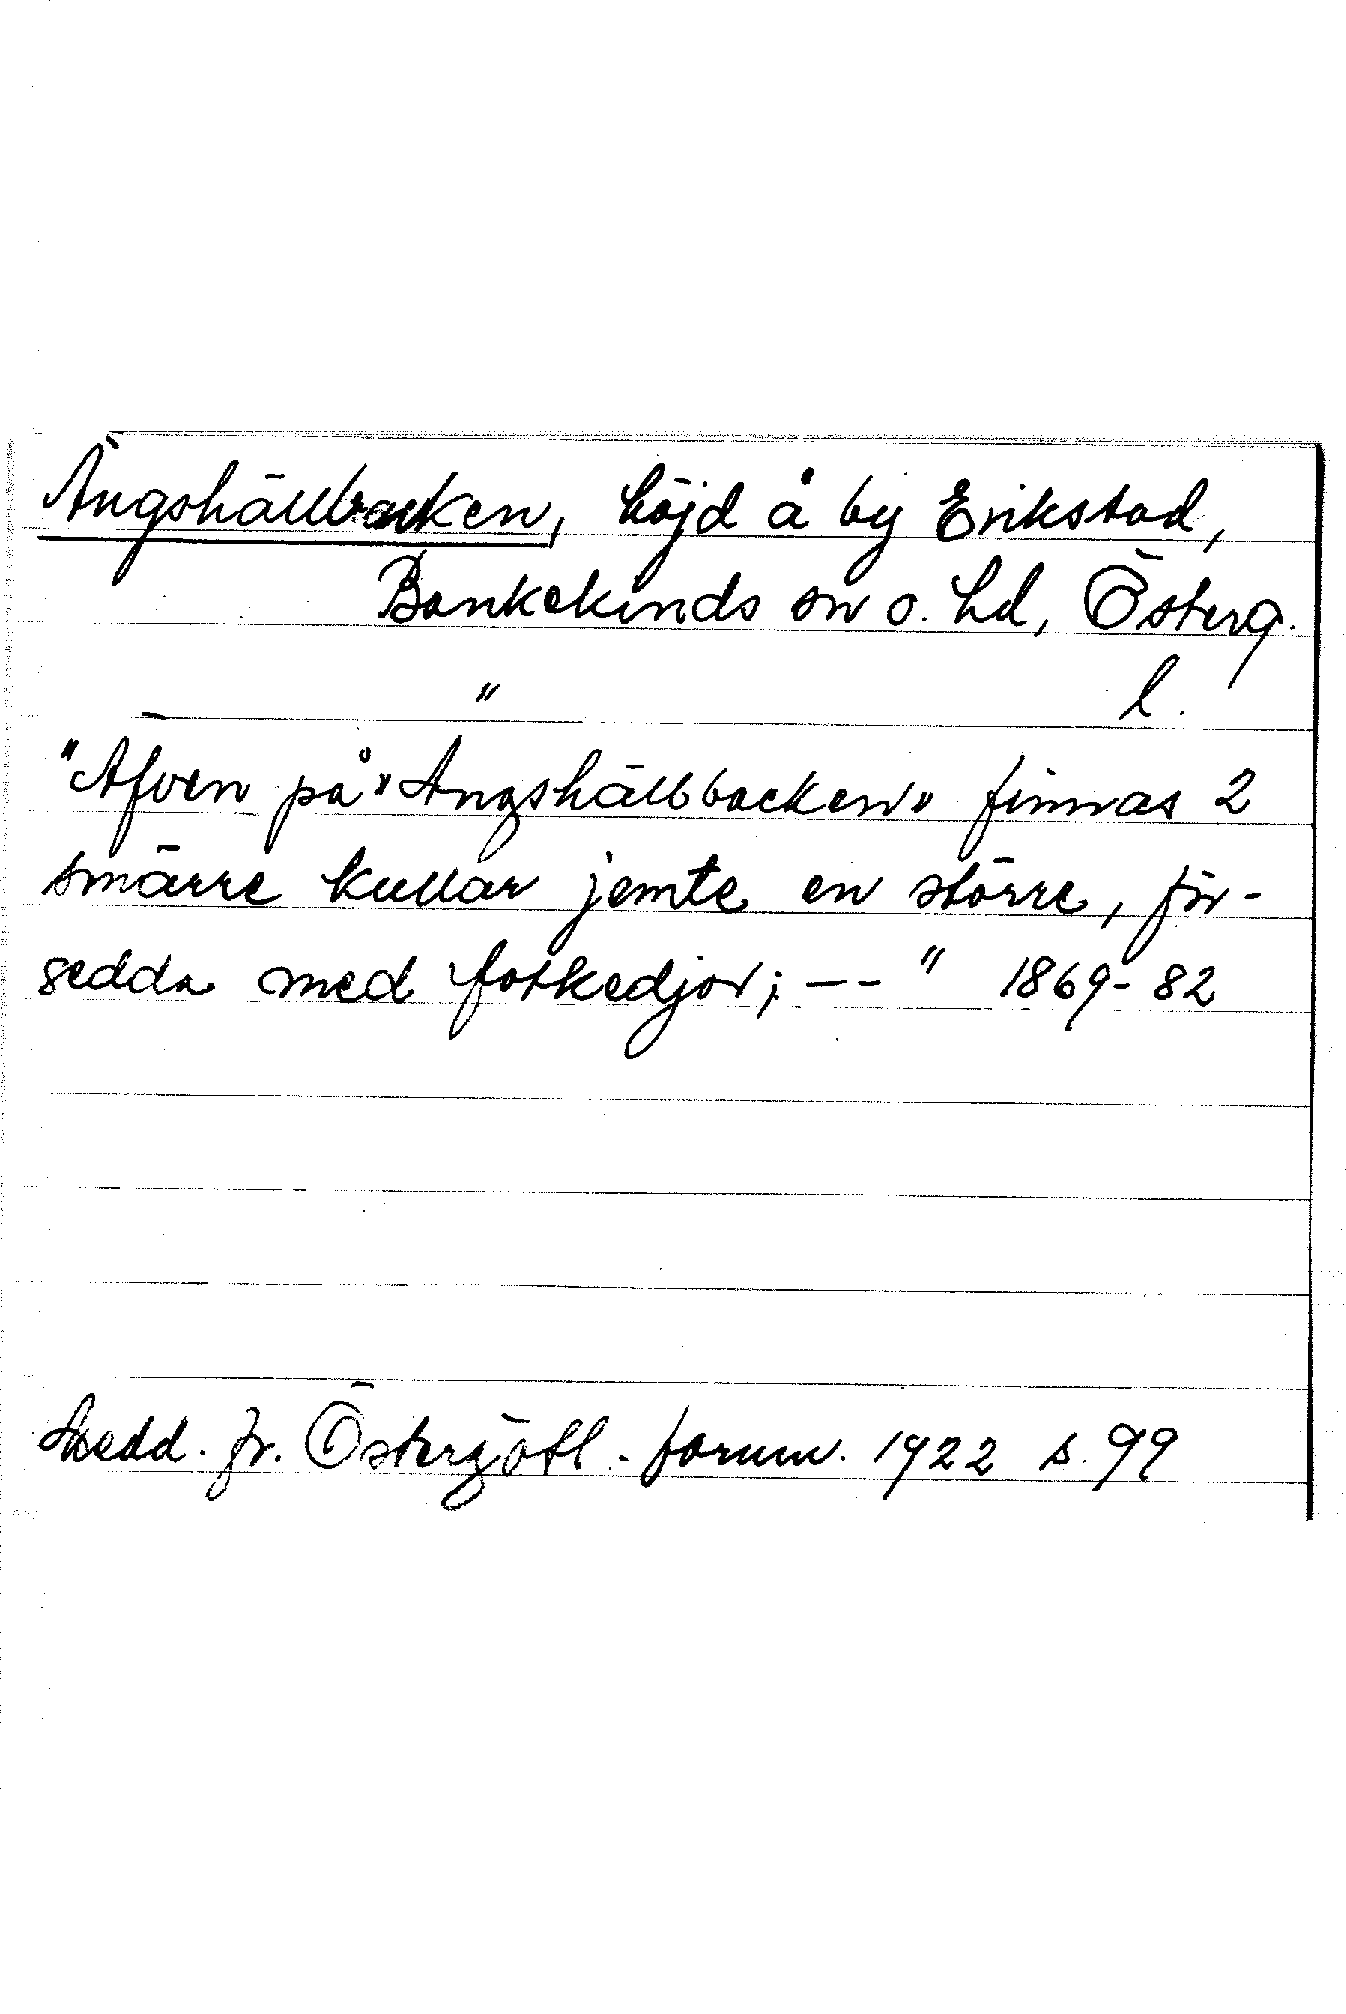 Ängshällbacken, höjd å by Erikstad,
Bankekinds sn o. hd, Österg.
" l.
"Afven på "Angshällbacken" finnas 2
smärre kullar jemte en större, för-
sedda med fotkedjor; -- " 1869-82
Medd. fr. Östergötl. fornm. 1922 s. 99